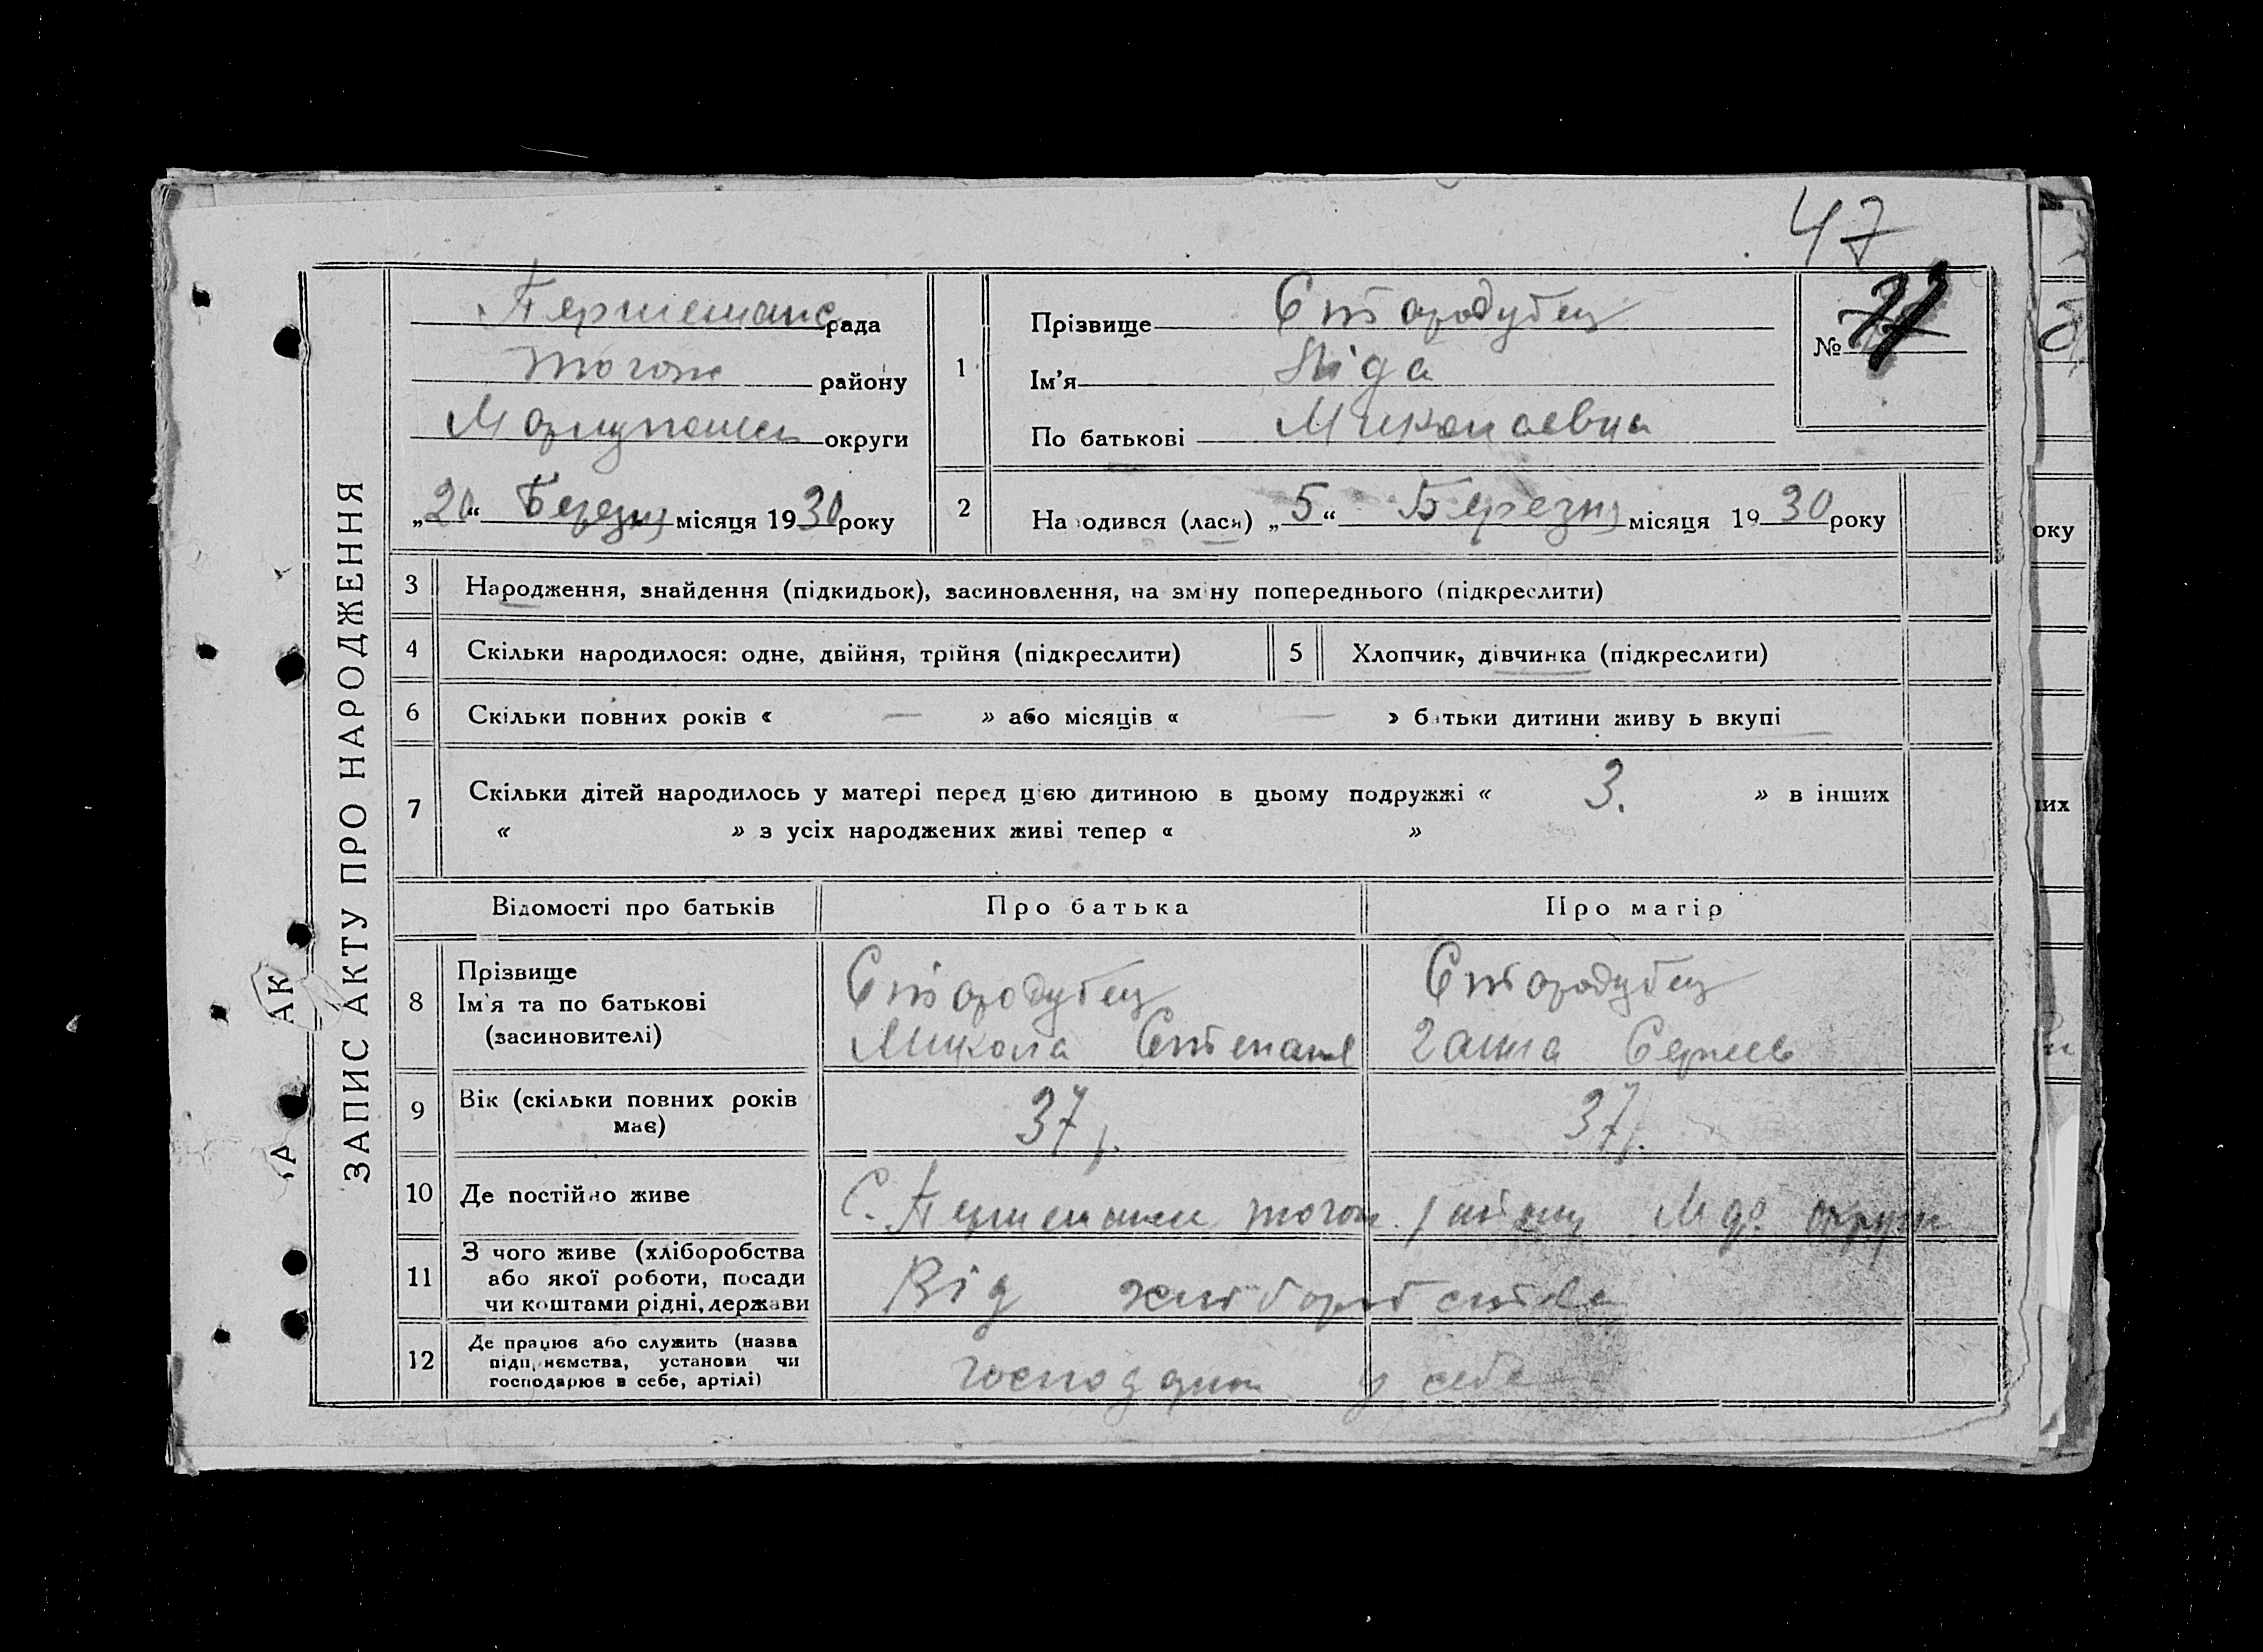 47
ЗАПИС АКТУ ПРО НАРОДЖЕННЯ
Першетанс рада
району
Маріупольськ округи
„20“ Березня місяця 1930 року
1
Прізвище Стародубец
Ім'я Ліда
По батькові Миколаевна
№ 77
2
Народився (лася) „5“ Березня місяця 1930 року
3 Народження, знайдення (підкидьок), засиновлення, на зміну попереднього (підкреслити)
4 Скільки народилося: одне, двійня, трійня (підкреслити)
5 Хлопчик, дівчинка (підкреслити)
6 Скільки повних років « — » або місяців « — » батьки дитини живуть вкупі
7 Скільки дітей народилось у матері перед цією дитиною в цьому подружжі « 3. » в інших
« » з усіх народжених живі тепер « »
Відомості про батьків
Про батька
Про матір
8 Прізвище
Ім'я та по батькові
(засиновителі)
Стародубец
Микола Степанов
Стародубец
Ганна Сергіев
9 Вік (скільки повних років
має)
37 р.
37 р.
10 Де постійно живе
С. району округи
11 З чого живе (хліборобства
або якої роботи, посади
чи коштами рідні, держави
Від хліборобства
12 Де працює або служить (назва
підприємства, установи чи
господарює в себе, артілі)
у себе
АК
оку
их